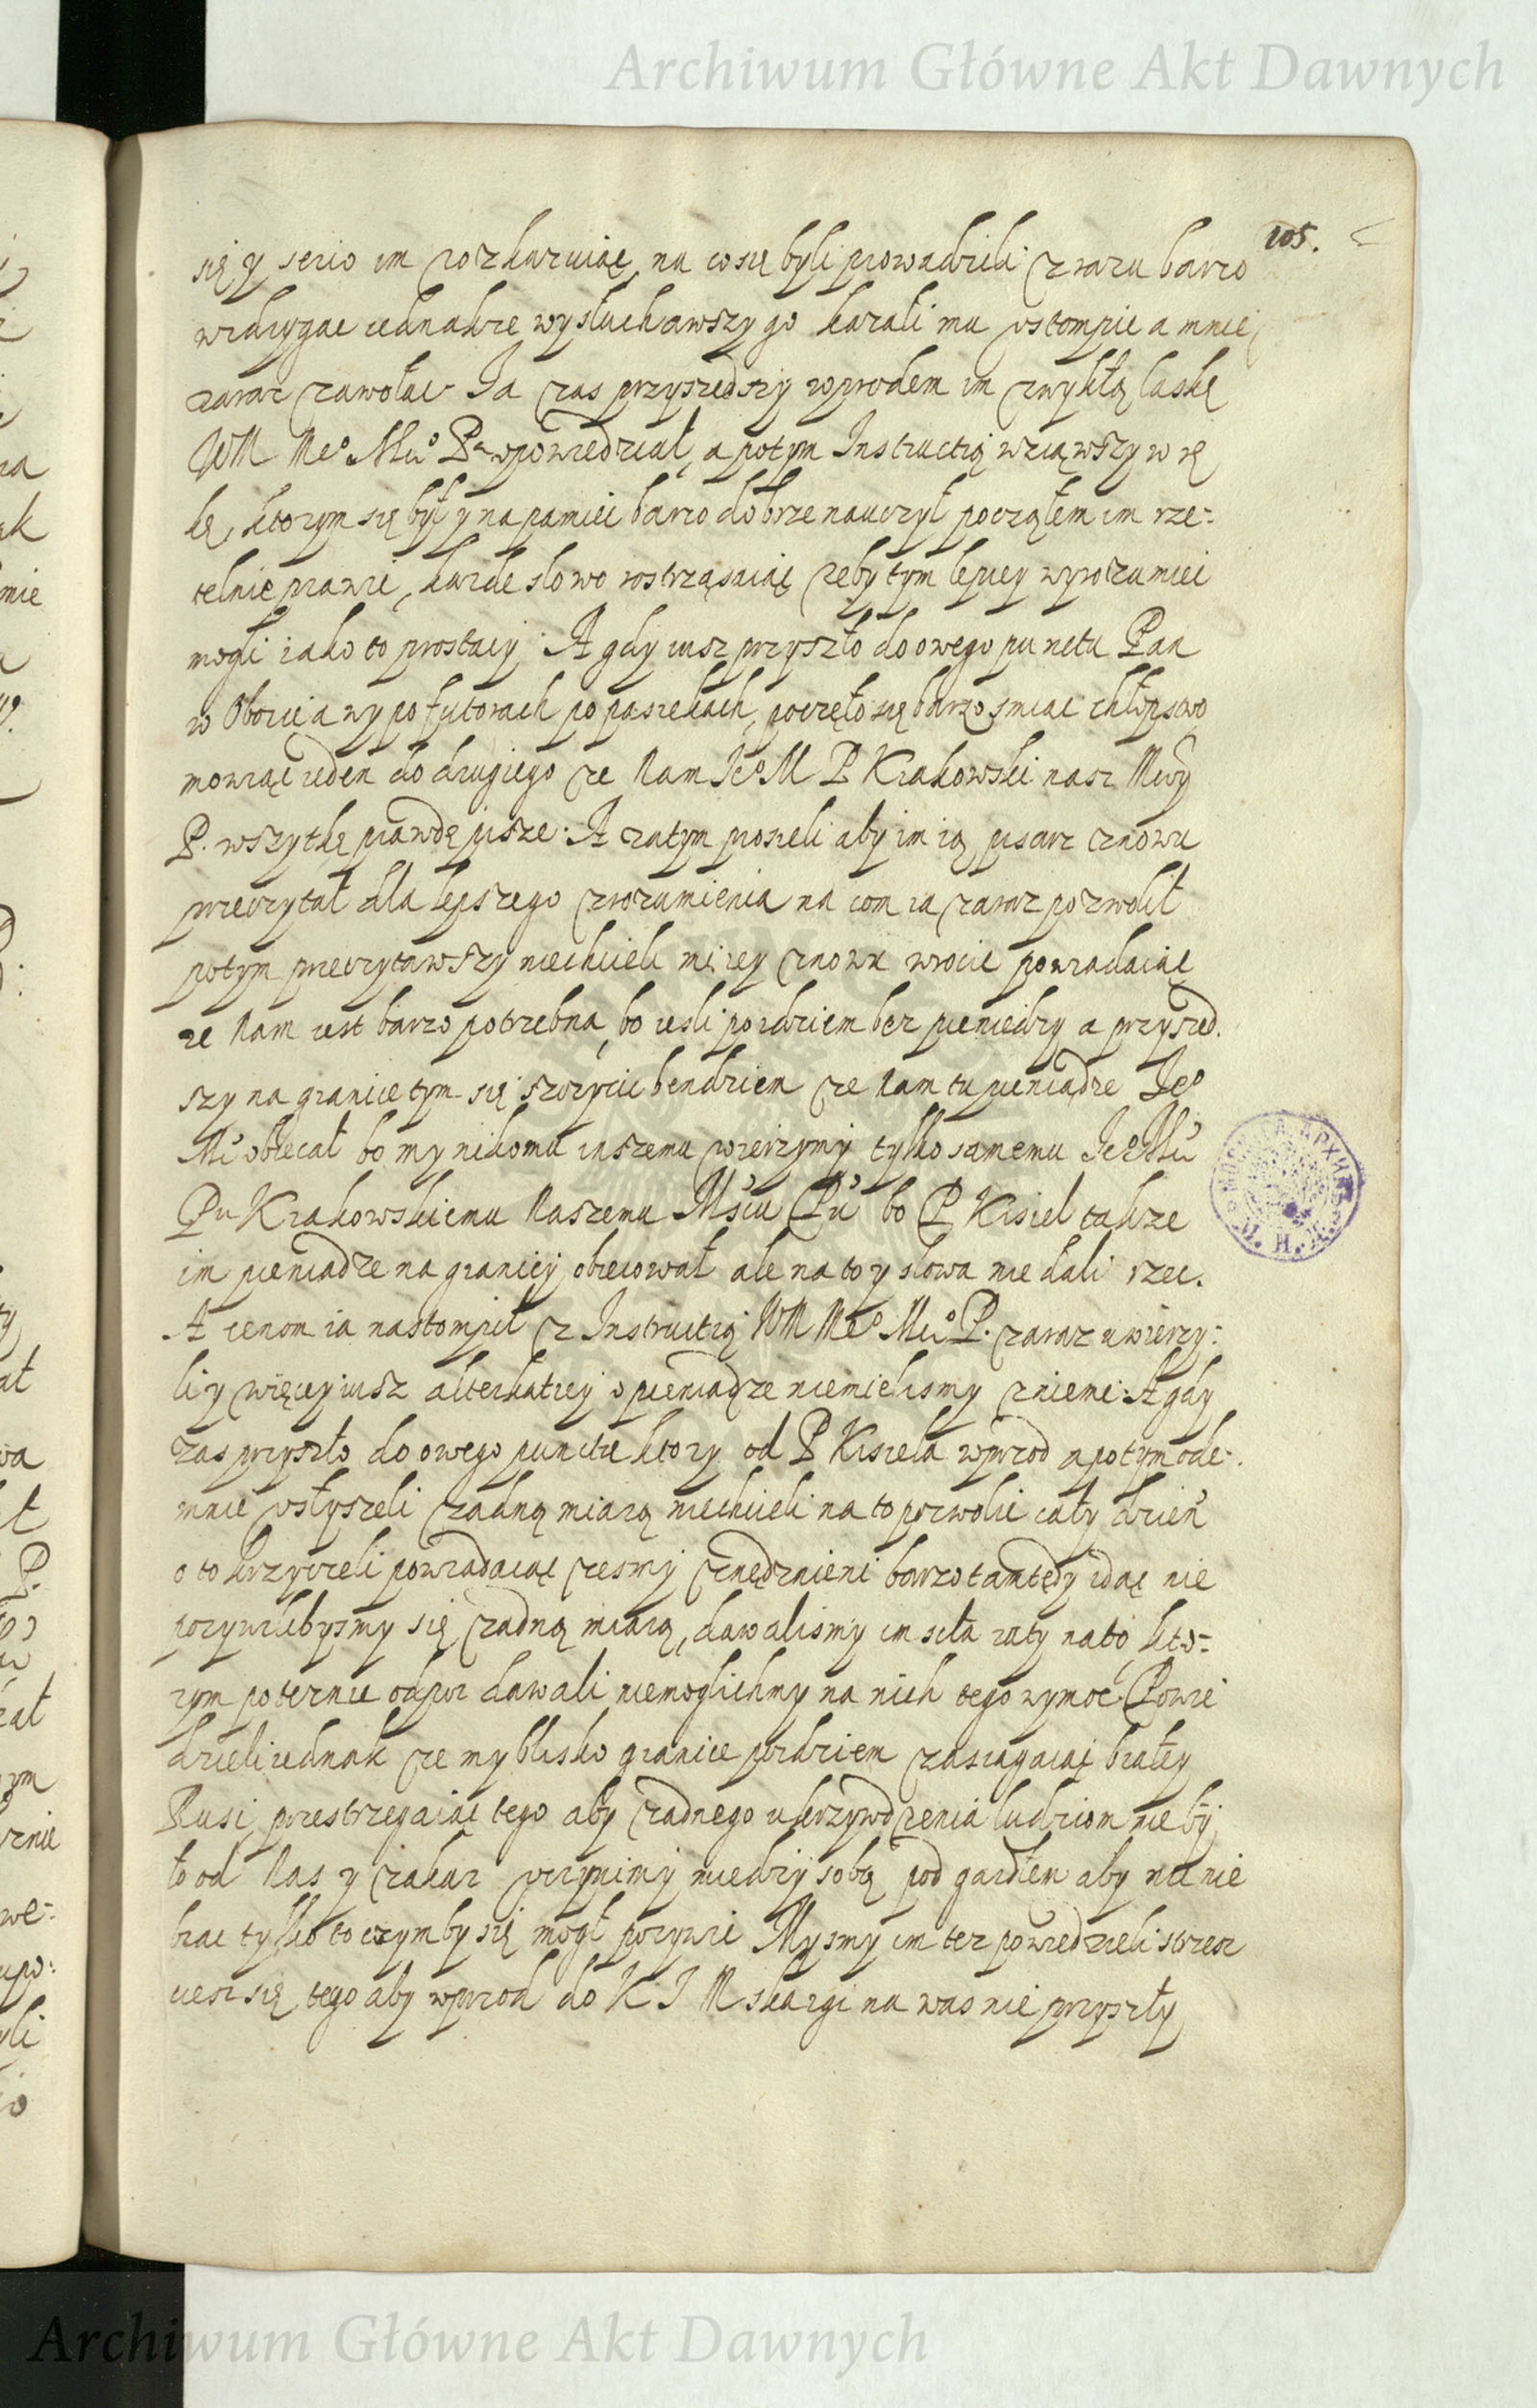 Archiwum Główne Akt Dawnych
105.
się y serio im rozkazuiąc, na co się byli prowadzili zrazu barzo
wzdrygac iednakze wysłuchawszy go kazali mu vstompic a mnie
zaraz zawołac Ja zas przyszedszy wprodem im zwykłą laskę
WM Me° Mci° P. opowiedział, a potym Instructią wziąwszy w rę
kę, ktorym się był y na pamiec barzo dobrze nauczył począłem im rze-
telnie prawic, kazde słowo rostrząsaiąc zeby tym lepiey wyrozumiec
mogli iako to prostacy. A gdy iusz przyszło do owego punctu Pan
w Obozie a wy po futorach po pasiekach, poczęło się barzo smiac chłopstwo
mowiąc ieden do drugiego ze Nam Je° M P Krakowski nasz Mciwy
P. wszytkę prawdę pisze. A zatym prosieli aby im ią pisarz znowu
przeczytał dla lepszego zrozumienia na com ia zaraz pozwolił
potym przeczytawszy niechcieli mi iey znowu wrocic powiadaiąc
ze Nam iest barzo potrzebna, bo iesli poidziem bez pieniedzy a przyszed.
szy na granice tym się szczycic bendziem ze Nam tu pieniądze Je°
Mć obiecał bo my nikomu inszemu wierzymy tylko samemu Je° Mci
Pu Krakowskiemu Naszemu Mściu Pu bo P Kisiel takze
im pieniadze na granicy obiecował ale na to y słowa nie dali rzec.
A ienom ia nastompił z Instructią WM Me° Mci° P. zaraz uwierzy-
li y więcey iusz alterkatiey o pieniądze niemielismy zniemi. A gdy
zas przyszło do owego punctu ktory od P Kisiela wprzod a potym ode-
mnie vsłyszeli zadną miarą niechcieli na to pozwolic cały dzień
o to krzyczeli powiadaiąc zesmy znędznieni barzo tamtędy idąc nie
pozywilibysmy się zadną miarą, dawalismy im siła raty na to, kto-
rym potęznie odpor dawali niemoglichmy na nich tego wymoć Powie
dzieli iednak ze my blisko granice poidziem zasiągaiąc białey
Rusi, przestrzegaiąc tego aby zadnego ukrzywdzenia ludziom nie by
ło od Nas y zakaz vczynimy miedzy sobą pod gardłem aby nic nie
brac tylko to czym by się mogł pozywic Mysmy im tez powiedzieli strzez
ciesz się tego aby wprzod do K J M skargi na was nie przyszły
Archiwum Główne Akt Dawnych